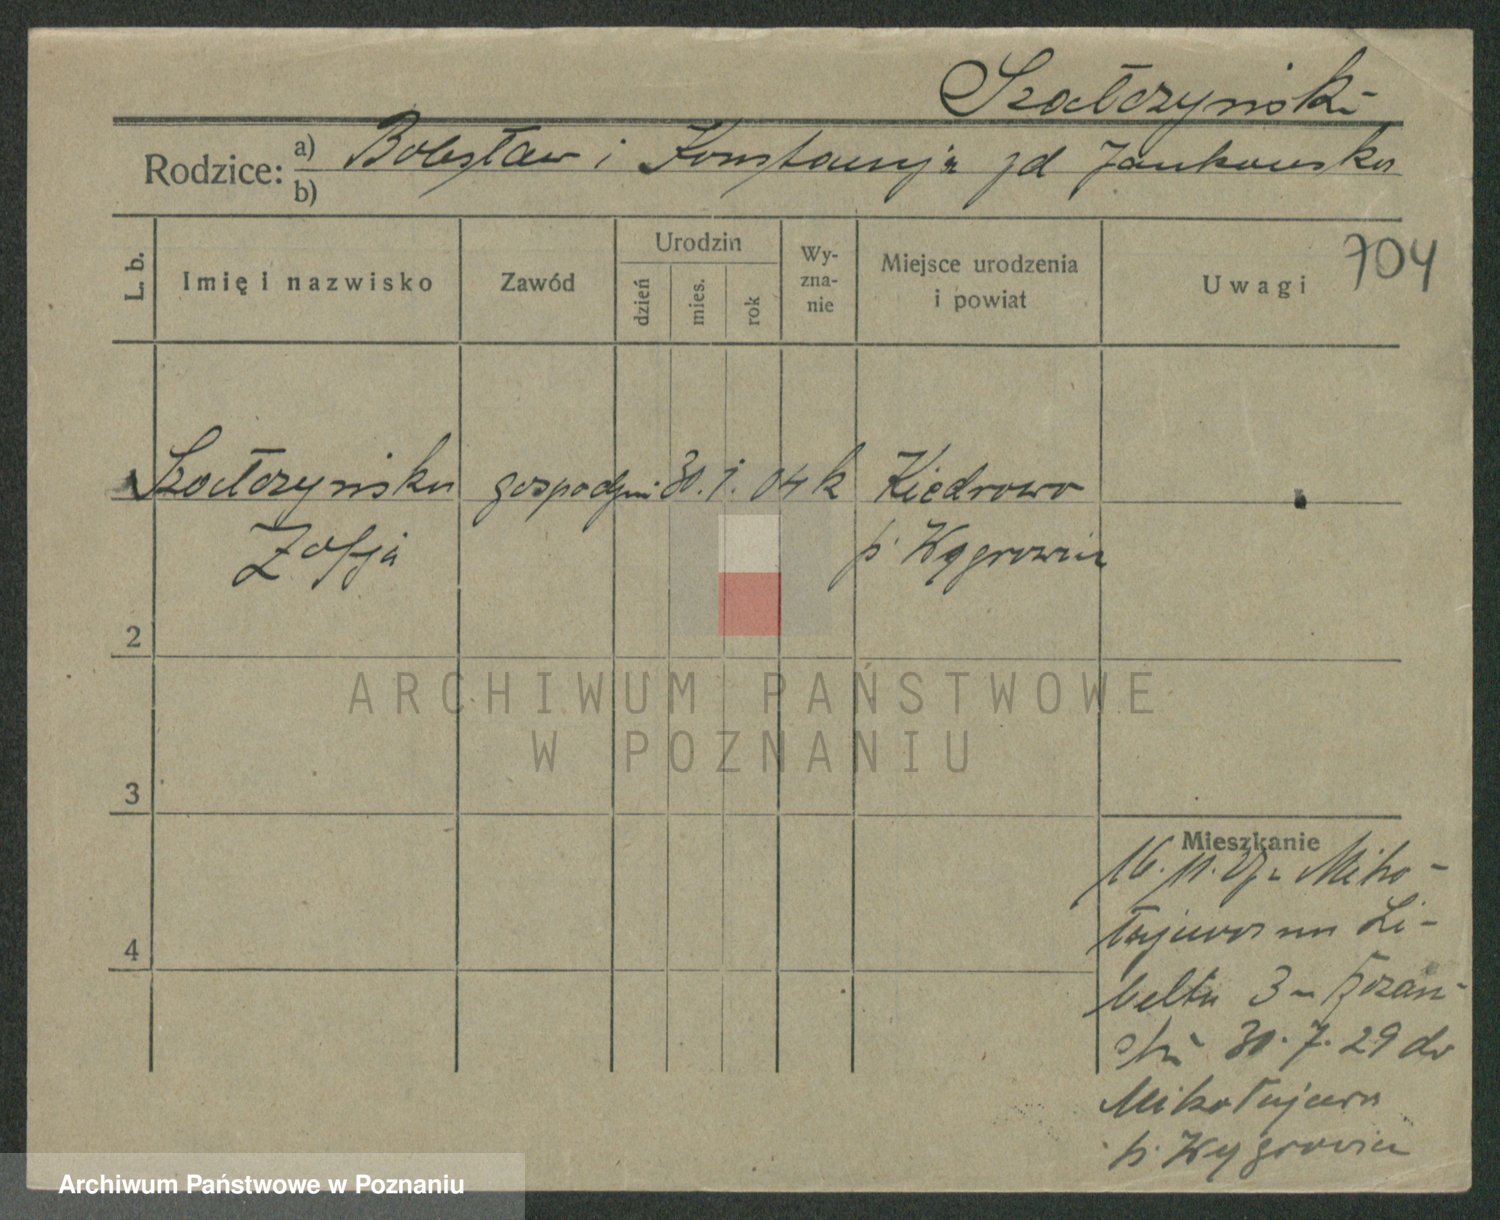 Szałczyński
Rodzice: a) Bolesław i Konstancja zd Jankowska
b)
L. b.
Imię i nazwisko
Zawód
Urodzin
dzień
mies.
rok
Wy-
zna-
nie
Miejsce urodzenia
i powiat
Uwagi
704
Szałczyńska gospodyni 30. 1. 04 k Kiedrowo
Zofja p. Wągrowiec
2
3
4
Mieszkanie
16. 11. 27 Miko-
łajewo Li-
belta 3
30. 7. 29 do
Mikołajewa
p. Wągrowiec
ARCHIWUM PAŃSTWOWE
W POZNANIU
Archiwum Państwowe w Poznaniu